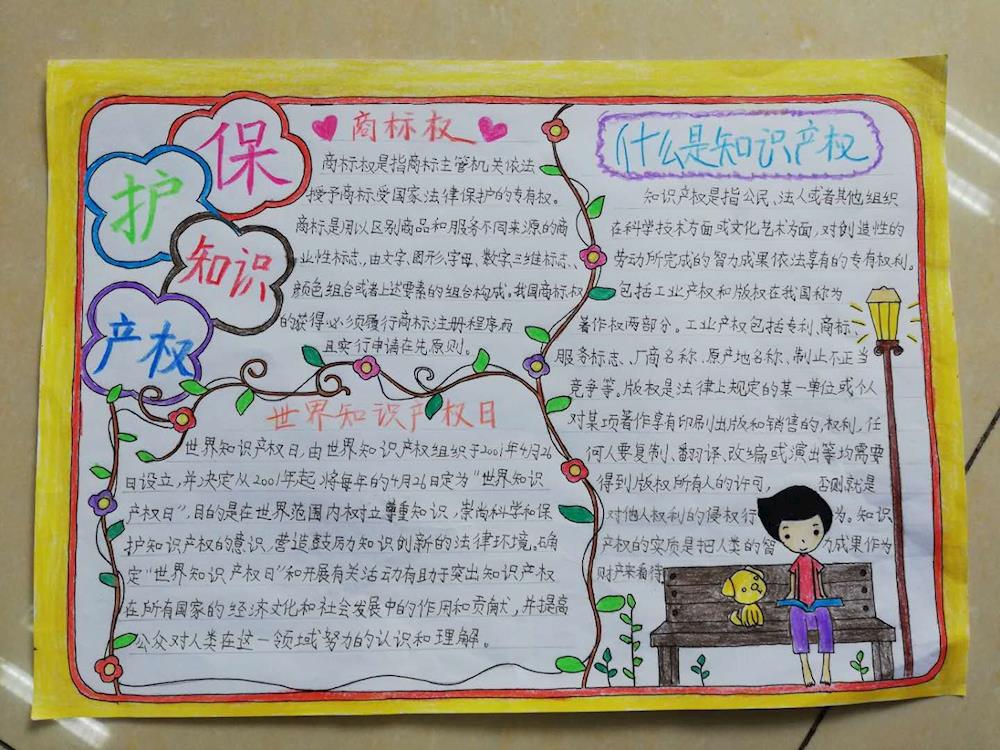 保
护
知识
产权
商标权
商标权是指商标主管机关依法
授予商标受国家法律保护的专有权。
商标是用以区别商品和服务不同来源的商
业性标志,由文字、图形、字母、数字、三维标志、
颜色组合或者上述要素的组合构成,我国商标权
的获得必须履行商标注册程序而
且实行申请在先原则。
世界知识产权日
世界知识产权日,由世界知识产权组织于2001年4月26
日设立,并决定从2001年起,将每年的4月26日定为“世界知识
产权日”,目的是在世界范围内树立尊重知识,崇尚科学和保
护知识产权的意识,营造鼓励知识创新的法律环境。确
定“世界知识产权日”和开展有关活动有助于突出知识产权
在所有国家的经济文化和社会发展中的作用和贡献,并提高
公众对人类在这一领域努力的认识和理解。
什么是知识产权
知识产权是指公民、法人或者其他组织
在科学技术方面或文化艺术方面,对创造性的
劳动所完成的智力成果依法享有的专有权利。
包括工业产权和版权在我国称为
著作权两部分。工业产权包括专利、商标、
服务标志、厂商名称、原产地名称、制止不正当
竞争等。版权是法律上规定的某一单位或个人
对某项著作享有印刷出版和销售的权利,任
何人要复制、翻译、改编或演出等均需要
得到版权所有人的许可, 否则就是
对他人权利的侵权行为。知识
产权的实质是把人类的智力成果作为
财产来看待